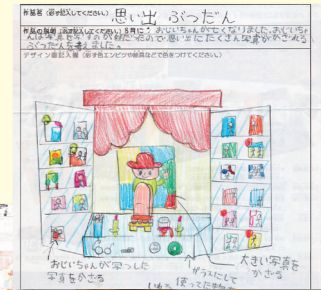 作品名（必ず記入してください。） 思い出 ぶつだん
作品の説明（必ず記入してください。） 5月に、おじいちゃんが亡くなりました。おじいちゃ
んは写真を
たくさん写真がかざれる
ぶつだんを考えました。
デザイン画記入欄（必ず色エンピツや絵具などで色をつけてください。）
おじいちゃんが写した
写真をかざる
大きい写真を
かざる
ガラスにして
使ってた物